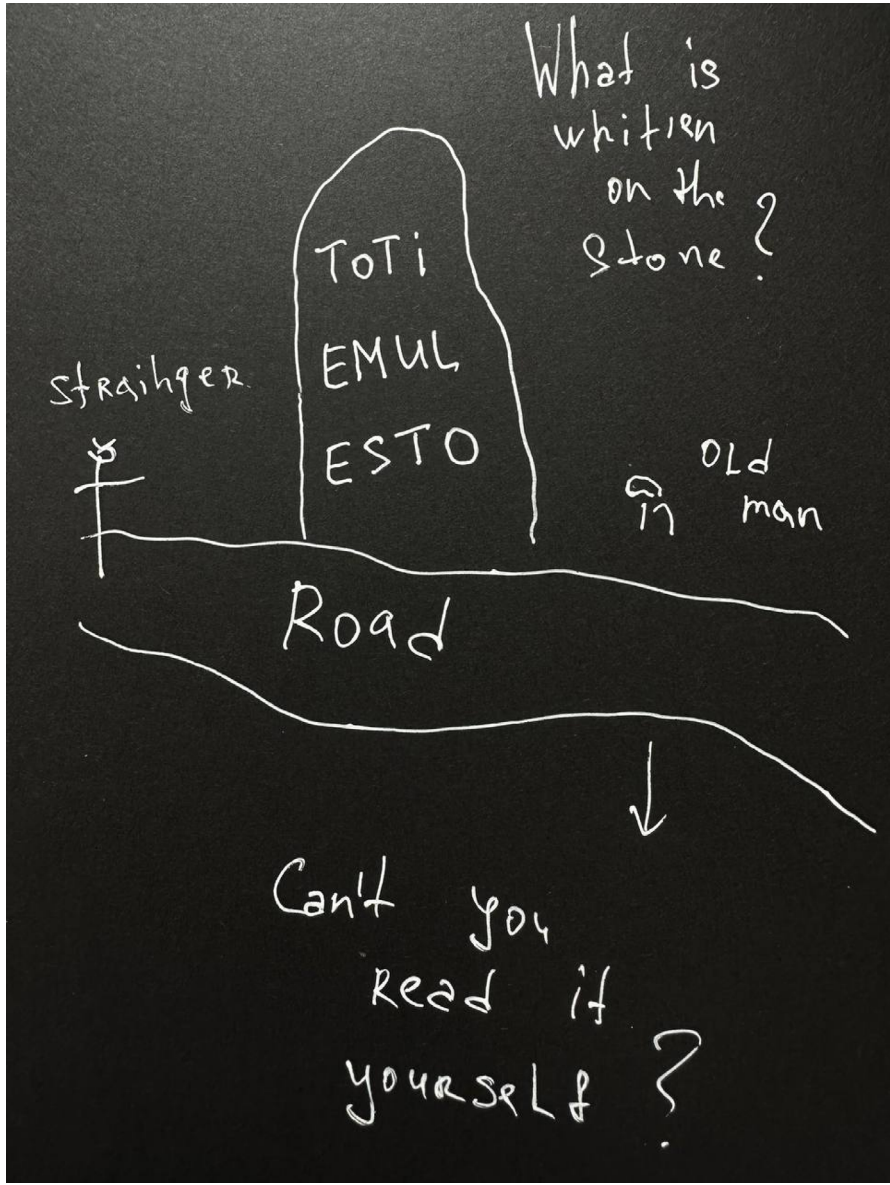 What is
whitten
on the
Stone?
ToTi
EMUL
ESTO
Straihger
OLd
man
Road
Can't you
Read it
yourself?